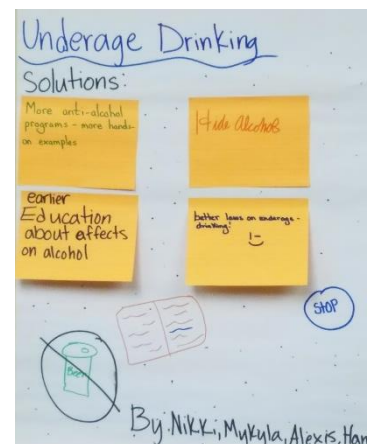 Underage Drinking
Solutions:
More anti-alcohol
programs - more hands-
on examples
Hide Alcohol
earlier
Education
about affects
on alcohol
better laws on underage-
drinking!
Beer
STOP
By: Nikki, Mykyla, Alexis, Han